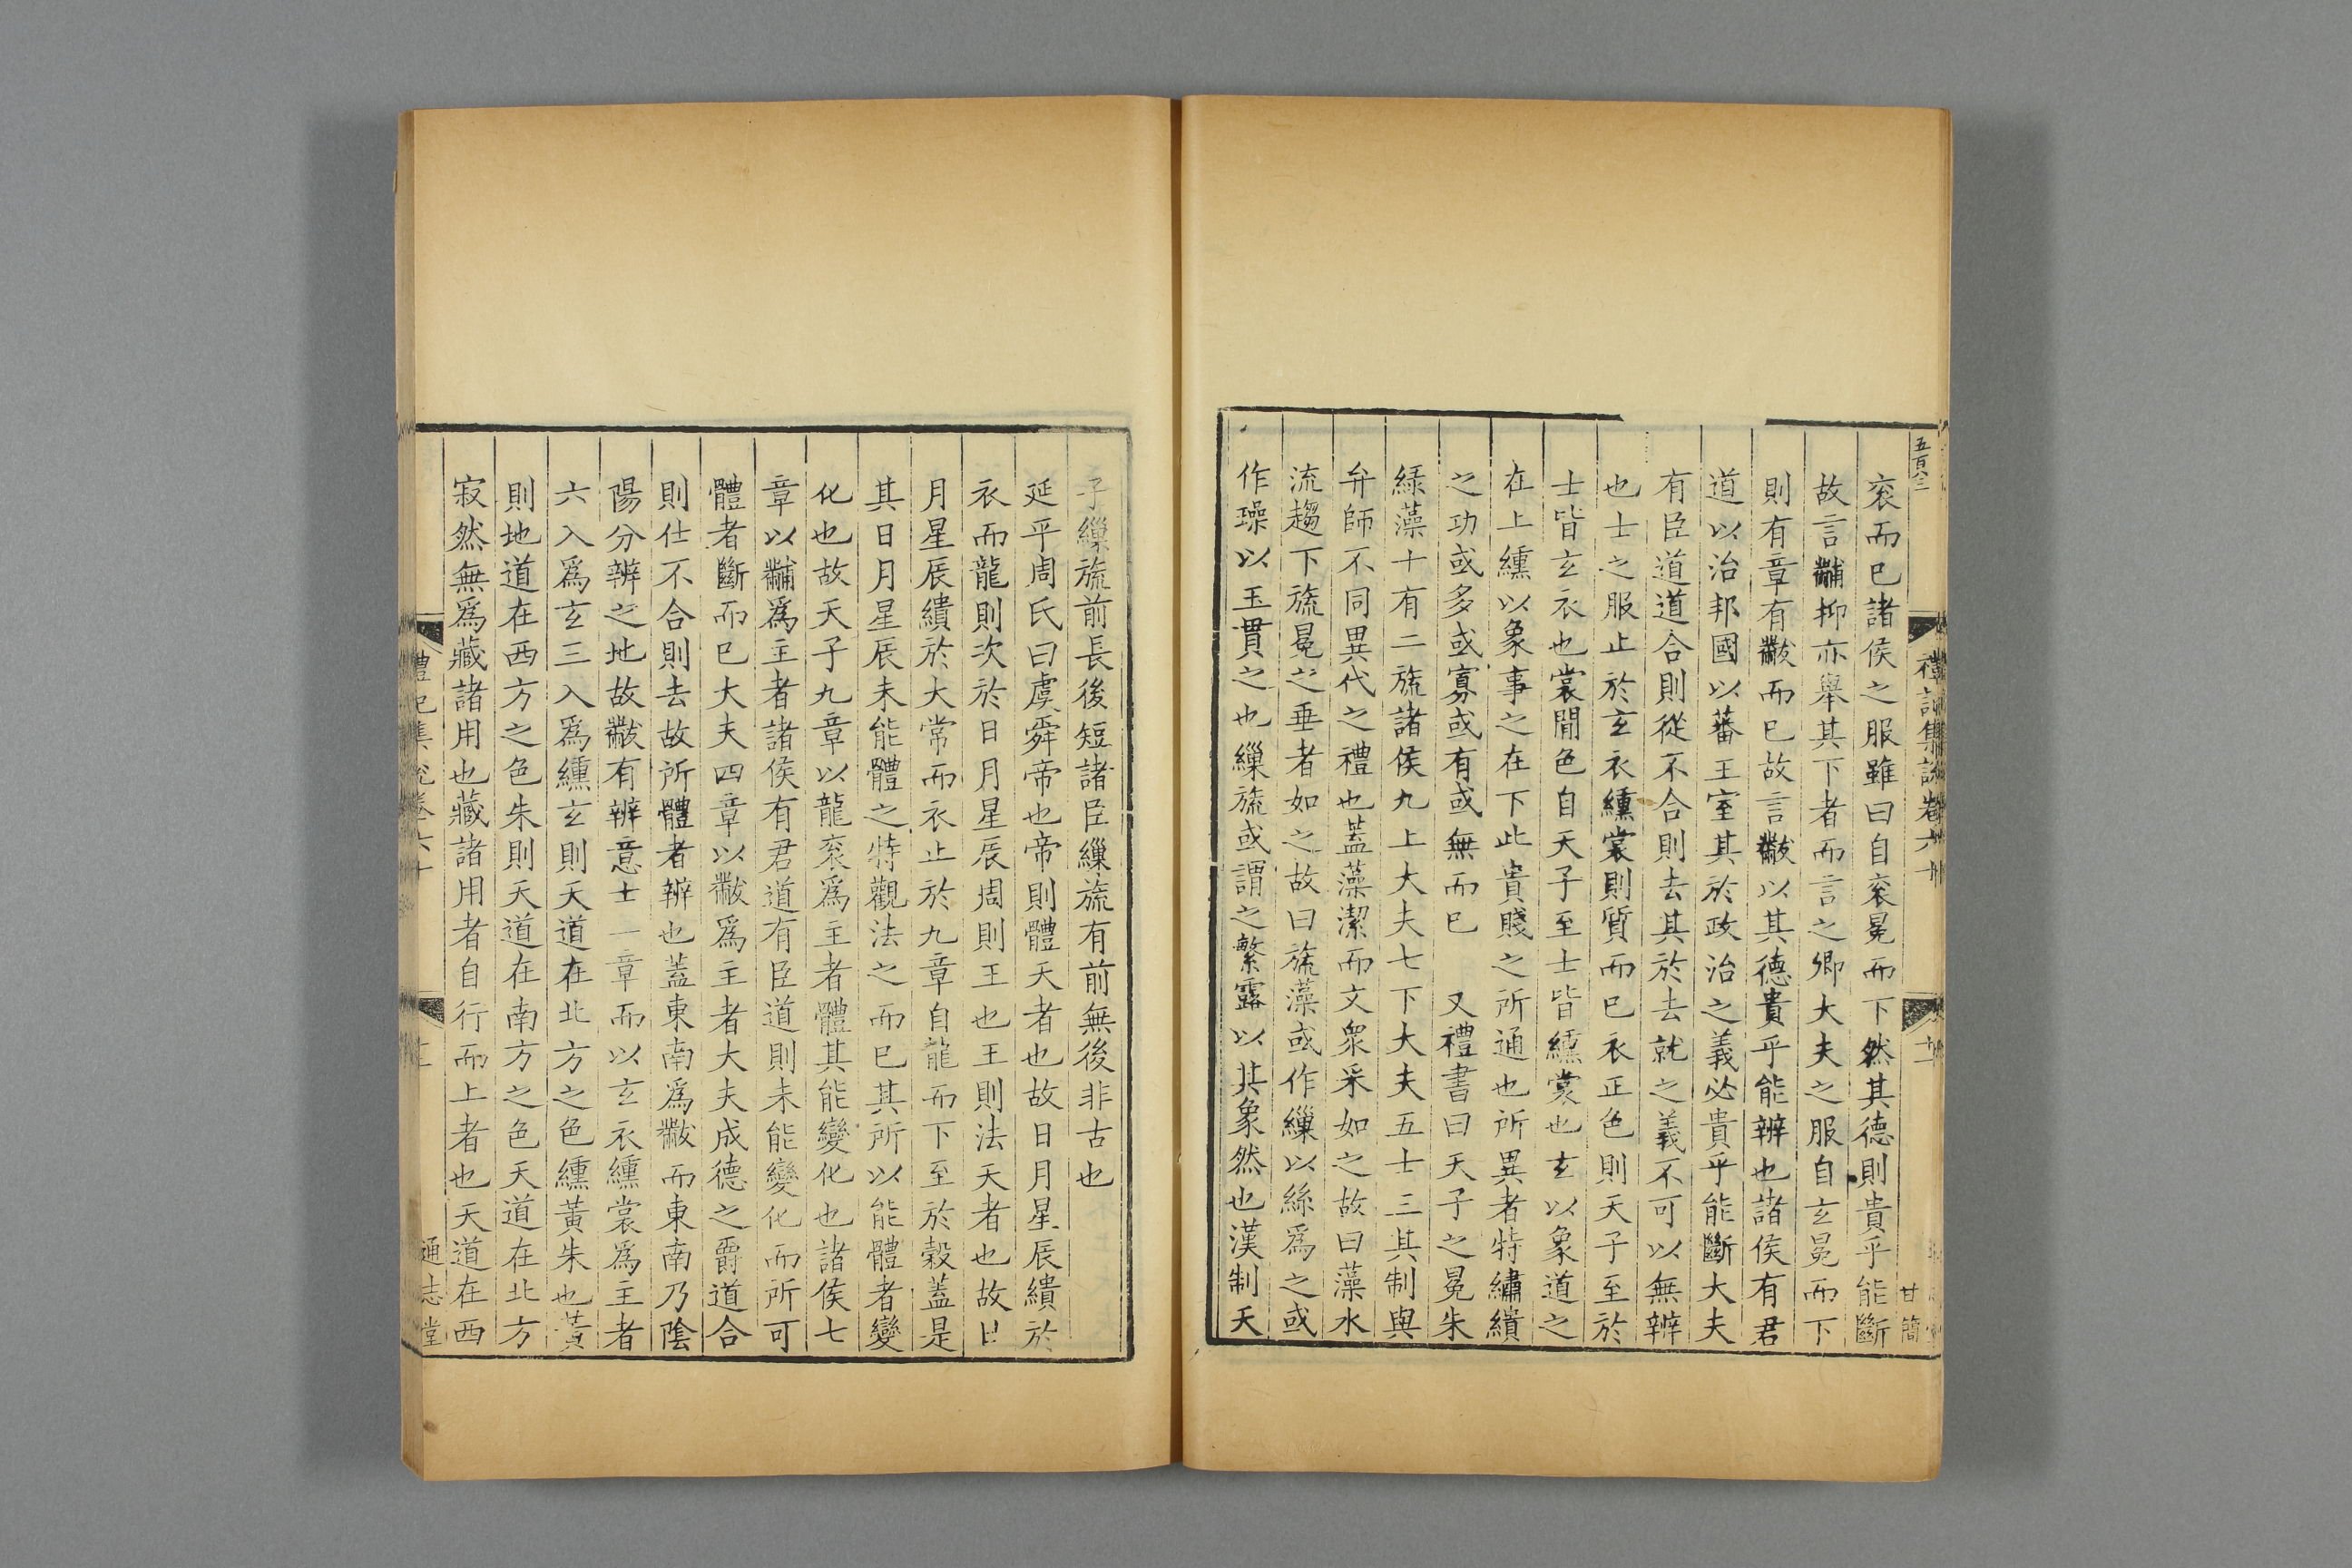 五百八三
禮記集說卷六十
甘簡
袞而已諸侯之服雖曰自袞冕而下然其德則貴乎能斷
故言黼抑亦舉其下者而言之卿大夫之服自玄冕而下
則有章有黻而已故言黻以其德貴乎能辨也諸侯有君
道以治邦國以蕃王室其於政治之義必貴乎能斷大夫
有臣道道合則從不合則去其於去就之義不可以無辨
也士之服止於玄衣纁裳則質而已衣正色則天子至於
士皆玄衣也裳閒色自天子至士皆纁裳也玄以象道之
在上纁以象事之在下此貴賤之所通也所異者特繡繢
之功或多或寡或有或無而已　又禮書曰天子之冕朱
綠藻十有二旒諸侯九上大夫七下大夫五士三其制與
弁師不同異代之禮也蓋藻潔而文衆采如之故曰藻水
流趨下旒冕之垂者如之故曰旒藻或作繅以絲爲之或
作璪以玉貫之也繅旒或謂之繁露以其象然也漢制天
子繅旒前長後短諸臣繅旒有前無後非古也
延平周氏曰虞舜帝也帝則體天者也故日月星辰繢於
衣而龍則次於日月星辰周則王也王則法天者也故日
月星辰繢於大常而衣止於九章自龍而下至於穀蓋是
其日月星辰未能體之特觀法之而已其所以能體者變
化也故天子九章以龍袞爲主者體其能變化也諸侯七
章以黼爲主者諸侯有君道有臣道則未能變化而所可
體者斷而已大夫四章以黻爲主者大夫成德之爵道合
則仕不合則去故所體者辨也蓋東南爲黻而東南乃陰
陽分辨之地故黻有辨意士一章而以玄衣纁裳爲主者
六入爲玄三入爲纁玄則天道在北方之色纁黃朱也黃
則地道在西方之色朱則天道在南方之色天道在北方
寂然無爲藏諸用也藏諸用者自行而上者也天道在西
禮記集說卷六十
通志堂